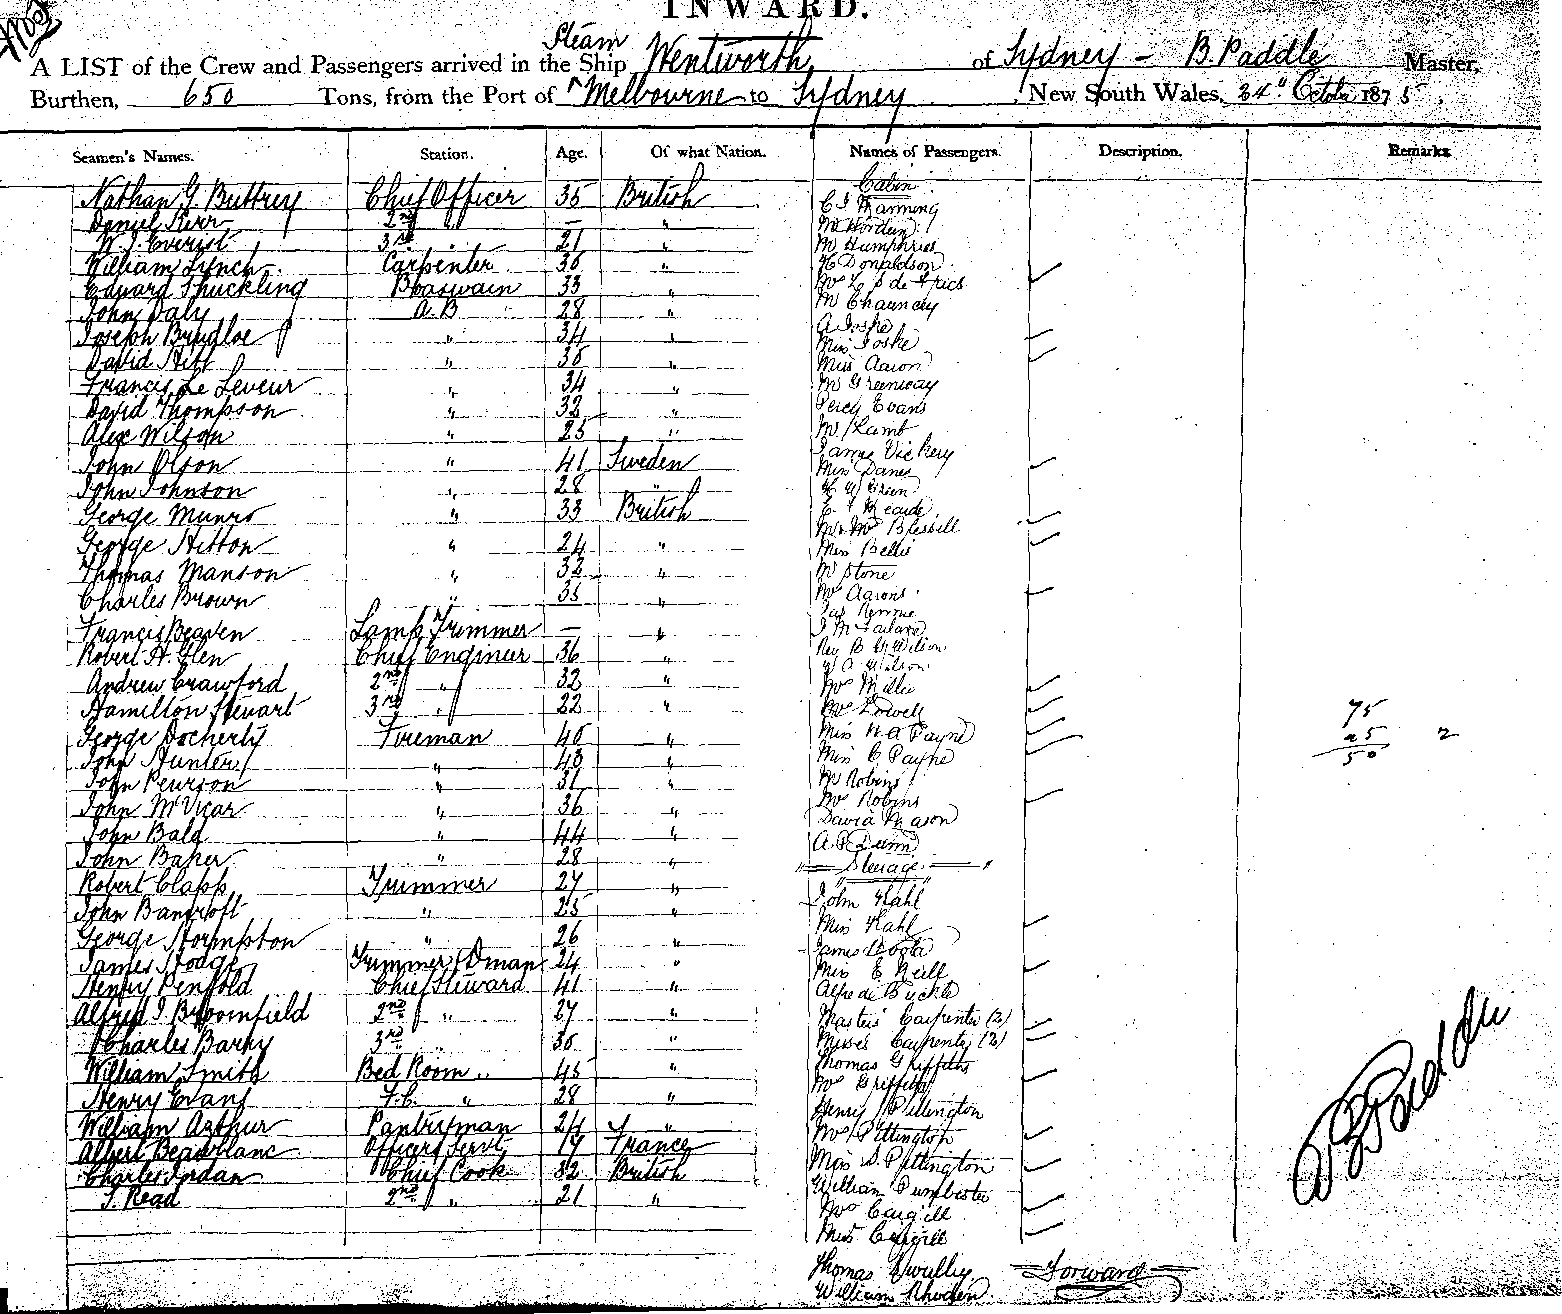 INWARD.
A LIST of the Crew and Passengers arrived in the Steam Ship Wentworth of Sydney - B. Paddle Master,
Burthen, 650 Tons, from the Port of Melbourne to Sydney New South Wales, 24" October 1875.
Seamen's Names. Station. Age. Of what Nation. Names of Passengers. Description. Remarks
Nathan G. Buttrey Chief Officer 35 British
Daniel Kerr 2nd " — "
W. J. Everist 3rd " 21 "
William Lynch Carpenter 36 "
Edward Shuckling Boaswain 33 "
John Daly A.B 28 "
Joseph Brudloe " 34 "
David Hill " 36 "
Francis Le Leveur " 34 "
David Thompson " 32 "
Alex Wilson " 25 "
John Olson " 41 Sweden
John Johnson " 28 "
George Munro " 33 British
George Hitton " 24 "
Thomas Manson " 32 "
Charles Brown " 35 "
Francis Beaven Lamp Trimmer — "
Robert H. Glen Chief Engineer 36 "
Andrew Crawford 2nd " 32 "
Hamilton Stewart 3rd " 22 "
George Docherty Fireman 40 "
John Hunter " 43 "
John Pearson " 31 "
John McVicar " 36 "
John Bald " 44 "
John Baker " 28 "
Robert Clapp Trimmer 27 "
John Bancroft " 25 "
George Stormpton " 26 "
James Hodge Trimmer & Dman 24 "
Henry Penfold Chief Steward 41 "
Alfred J Broomfield 2nd " 27 "
Charles Barry 3rd " 30 "
William Smith Bed Room " 45 "
Henry Evans F.C. " 28 "
William Arthur Pantryman 24 "
Albert Beaublanc Officers Servt 17 France
Charles Jordan Chief Cook 32 British
J. Read 2nd " 21 "
Cabin
C J Manning
Mr Hordern
Mr Humphries
H Donaldson
Mr Chauncey
A Joske
Miss Joske
Miss Aaron
Mr Greenway
Percy Evans
Mr Lamb
James Vickery
Miss Danes
Miss Bellis
Mr Stone
Mr Aarons
Mrs Millie
Mrs Powell
Miss N A Payne
Miss C Payne
Mr Robins
Mrs Robins
David Mason
A P Dunn
Steerage
John Kahl
Miss Kahl
James Doola
Miss E Neill
Alfred Buckle
Masters Carpenter (2)
Misses Carpenter (2)
Thomas Griffiths
Mrs Griffiths
Henry Pittington
Mrs Pittington
Miss S. Pittington
Mrs Cargill
Miss Cargill
Thomas
William Rhoden
Forward
75
25 2
50
B Paddle